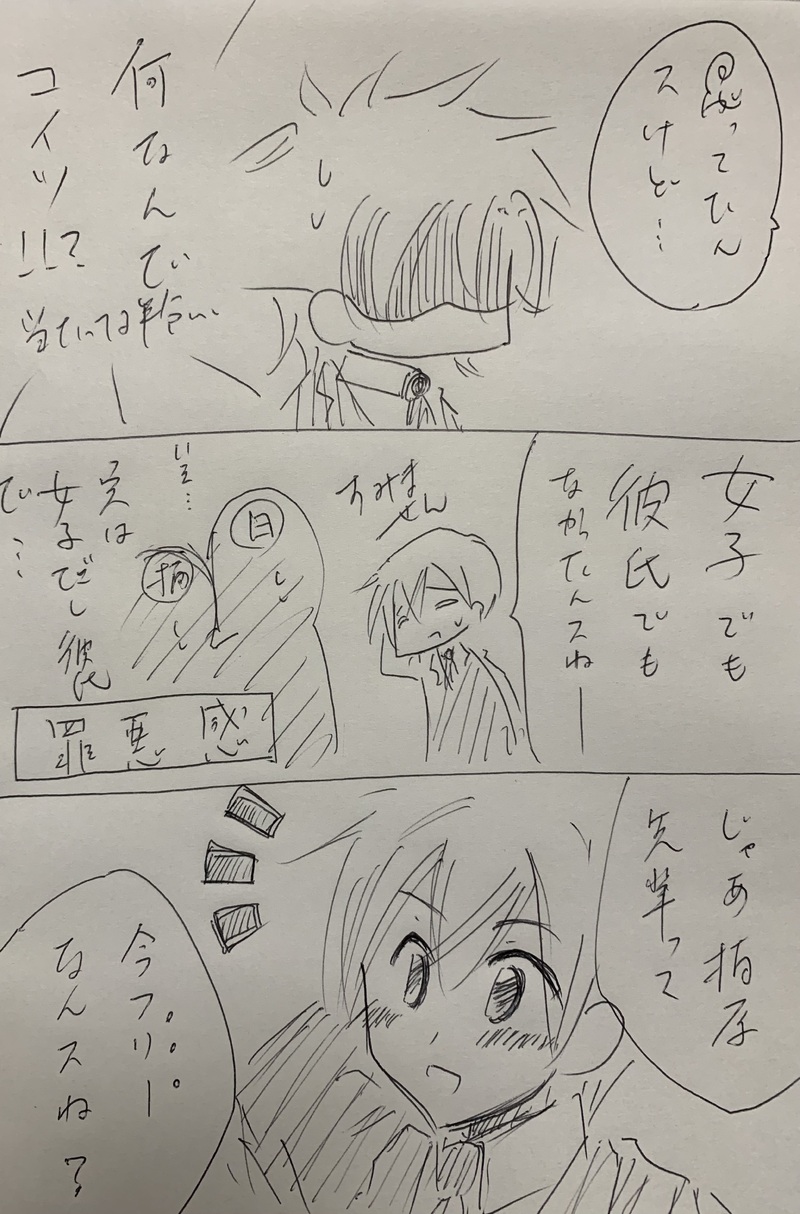 思ってたん
スけど…
何なんで
コイツ!!?
女子でも
彼氏でも
なかったんスねー
すみま
せん
いえ…
実は
女子だし彼氏
で…
罪悪感
じゃあ柏原
先輩って
今フリー
なんスね?